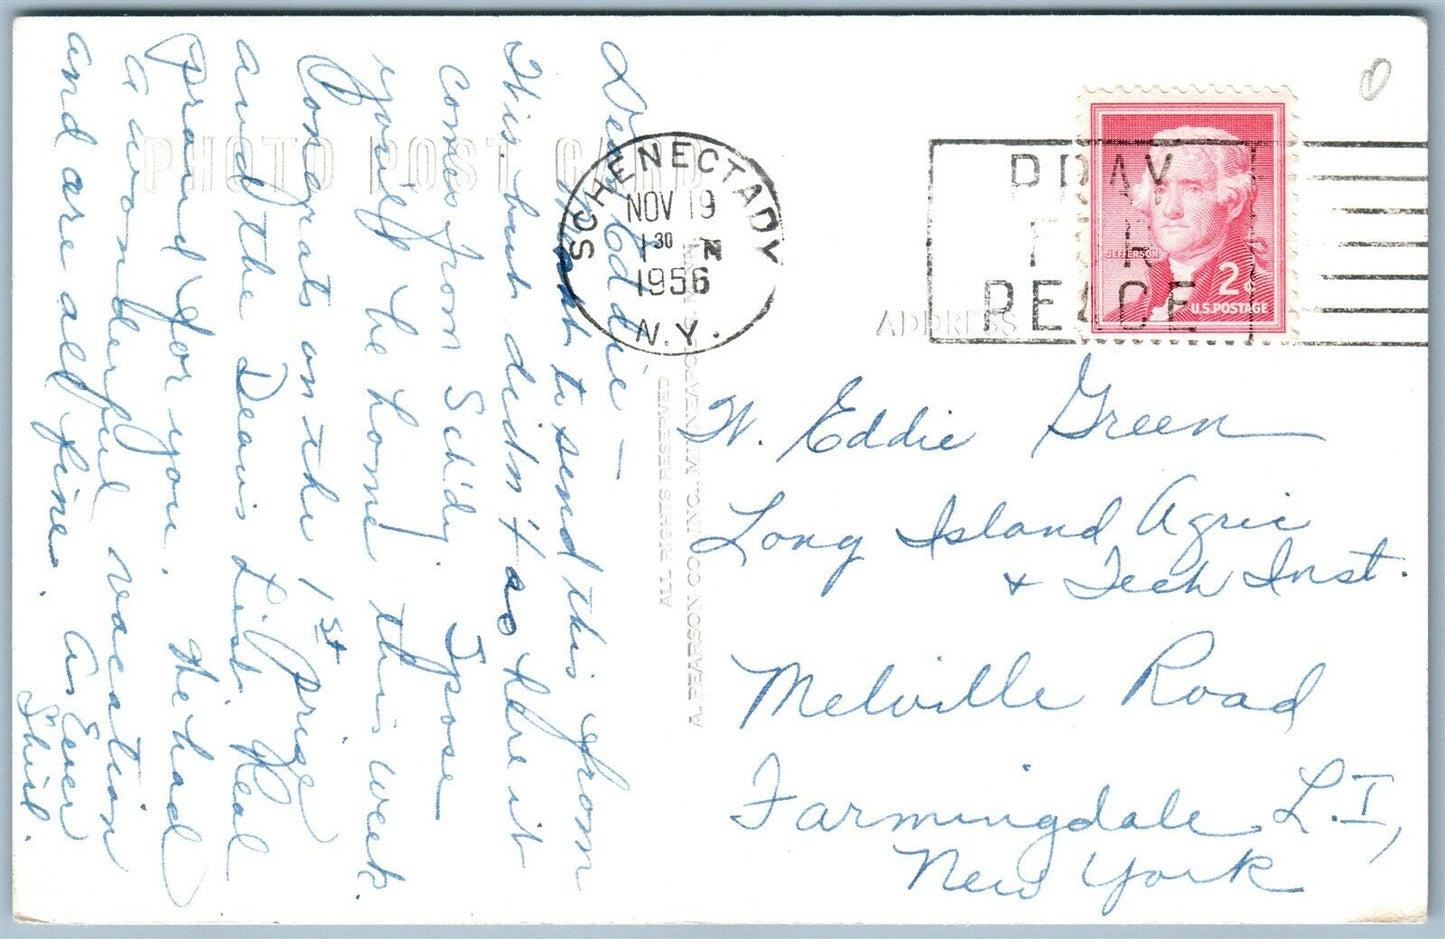 Dear Eddie —
Meant to send this from
this but didn't so here it
comes from Sch'dy. I pose
you'll be home this week.
Congrats on the 1st prize
and the Dean's List. Real
proud for you. We had
a wonderful vacation
and are all fine. As Ever
Shirl.
PHOTO POST CARD
SCHENECTADY
NOV 19
1 30 PM
1956
N.Y.
PRAY
FOR
PEACE
JEFFERSON
2 c
U.S. POSTAGE
ADDRESS
ALL RIGHTS RESERVED
A. PEARSON CO. INC., MINNEAPOLIS
W. Eddie Green
Long Island Agric
+ Tech Inst.
Melville Road
Farmingdale, L.I,
New York